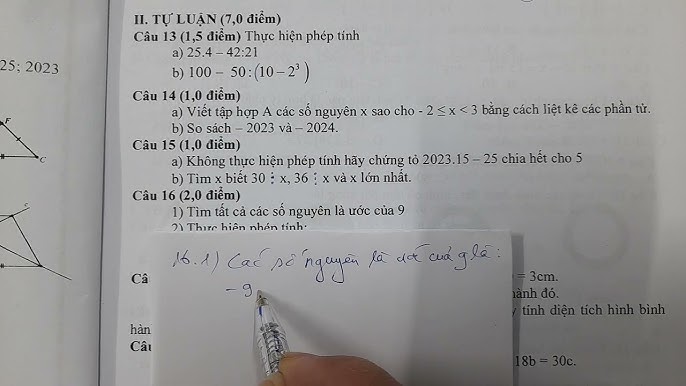 II. TỰ LUẬN (7,0 điểm)
Câu 13 (1,5 điểm) Thực hiện phép tính
a) 25.4 – 42:21
25; 2023
b) 100 – 50:(10 – 2³)
Câu 14 (1,0 điểm)
a) Viết tập hợp A các số nguyên x sao cho - 2 ≤ x < 3 bằng cách liệt kê các phần tử.
F
b) So sách – 2023 và – 2024.
Câu 15 (1,0 điểm)
C
a) Không thực hiện phép tính hãy chứng tỏ 2023.15 – 25 chia hết cho 5
b) Tìm x biết 30 ⋮ x, 36 ⋮ x và x lớn nhất.
Câu 16 (2,0 điểm)
1) Tìm tất cả các số nguyên là ước của 9
2) Thực hiện phép tính:
16.1) Các số nguyên là ước của 9 là:
-9
= 3cm.
hành đó.
tính diện tích hình bình
hàn
18b = 30c.